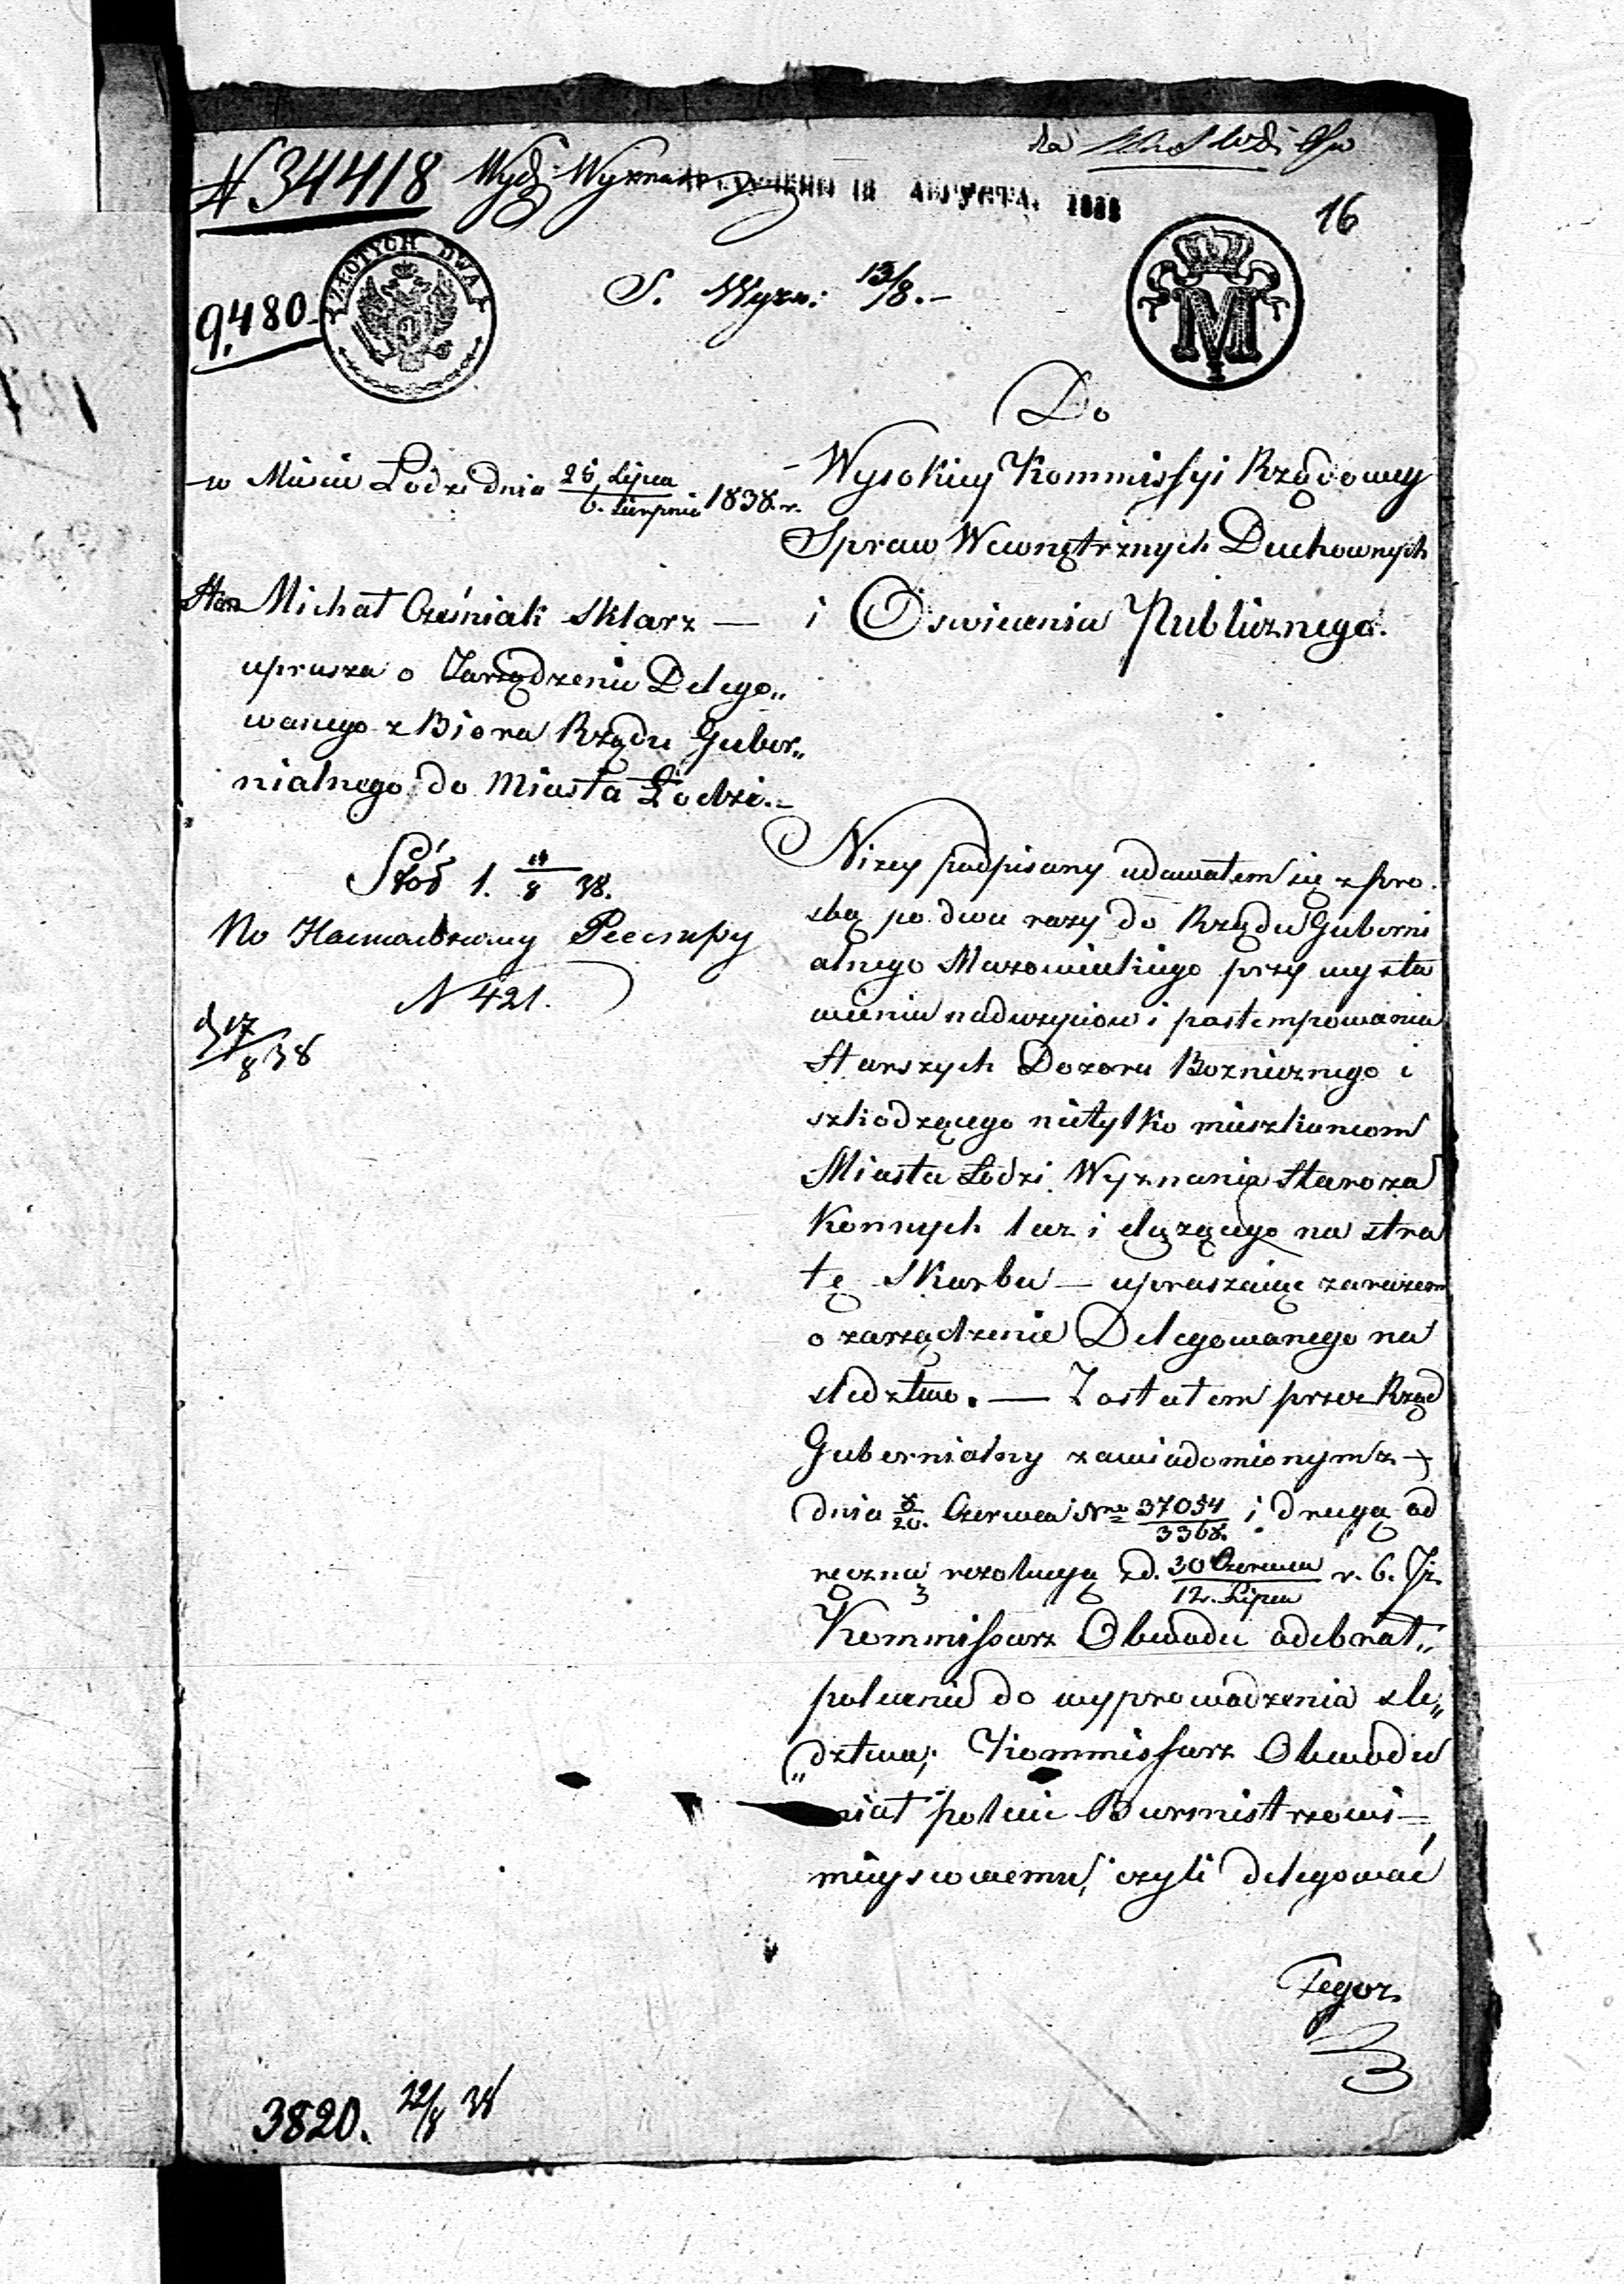 N 34418 Wyd. Wyznań
АВГУСТА 1838
16
ZŁOTYCH DWA
9,480
S. Wyzn: 13/8.-
M
Do
w Mieście Łodzi dnia 25 Lipca / 6. Sierpnia 1838. r.
Wysokiey Kommissyi Rządowey
Spraw Wewnętrznych Duchownych
i Oswiecenia Publicznego.
Michał Cześniak Sklarz —
uprasza o Zarządzenie Delego„
wanego z Biora Rządu Guber„
nialnego do Miasta Łodzi.-
1. 14/8 38.
По Реестру
N 421.
17/8 38
Nizey podpisany udawałem się z pro
sbą po dwa razy do Rządu Guberni
alnego Mazowieckiego przy wysta
wieniu nadużyciow i postempowania
Starszych Dozoru Boznicznego i
szkodzącego nietylko mieszkancom
Miasta Łodzi Wyznania Staroza
konnych lecz i dążącego na stra
tę Skarbu — upraszaiąc zarazem
o zarządzenie Delegowanego na
sledztwo. — Zostałem przez Rząd
Gubernialny zawiadomionym z
dnia 8/20. Czerwca Nro 37054/3368. i drugą od
ręczną rezolucyą z d. 30 Czerwca / 12. Lipca r. b. Iż
Kommissarz Obwodu odebrał„
polecenie do wyprowadzenia sle„
„dztwa; Kommissarz Obwodu
miał polecić Burmistrzowi
mieyscowemu, czyli delegować
3820. 22/8 38